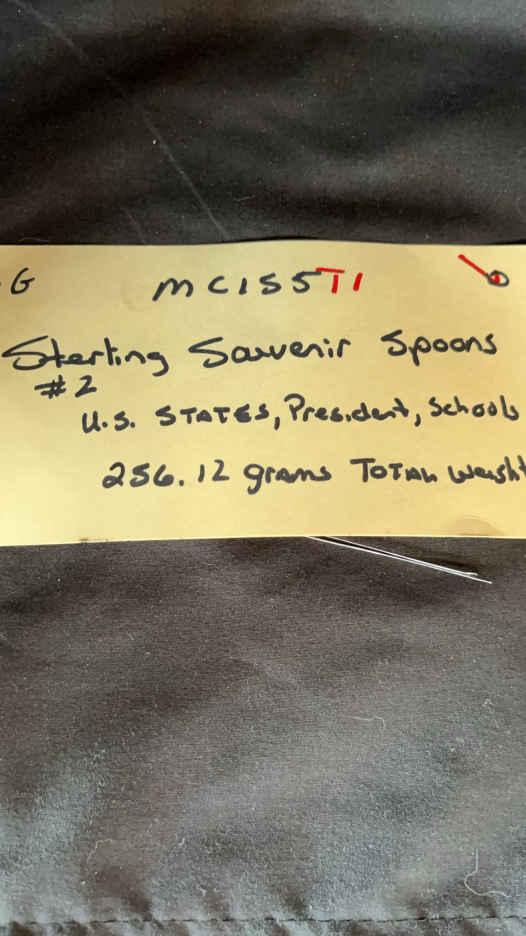 G MC155TI
Sterling Souvenir Spoons
#2
U.S. STATES, President, Schools
256.12 grams TOTAL Weight